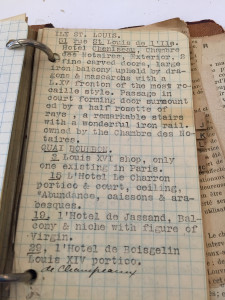 ILE ST. LOUIS.
51 rue St. Louis de l'Ile.
Hotel Chenizeau, Chambre
des Notaires, Exterior, 2
fine carved doors, large
iron balcony upheld by dra-
gons & mascarons with a
LXV fronton of the most ro-
caille style. Passage in
court forming door surmount
ed by a half rosette of
rays , a remarkable staire
with a wonderful iron rail.
owned by the Chambre des No-
taires.
QUAI BOURBON.
Louis XVI shop, only
one existing in Paris.
15 L'Hotel Le Charron
portico & court, ceiling,
Abundance, caissons & ara-
besques.
19, l'Hotel de Jassand, Bal-
cony & niche with figure of
Virgin.
29, l'Hotel de Boisgelin
Louis XIV portico.